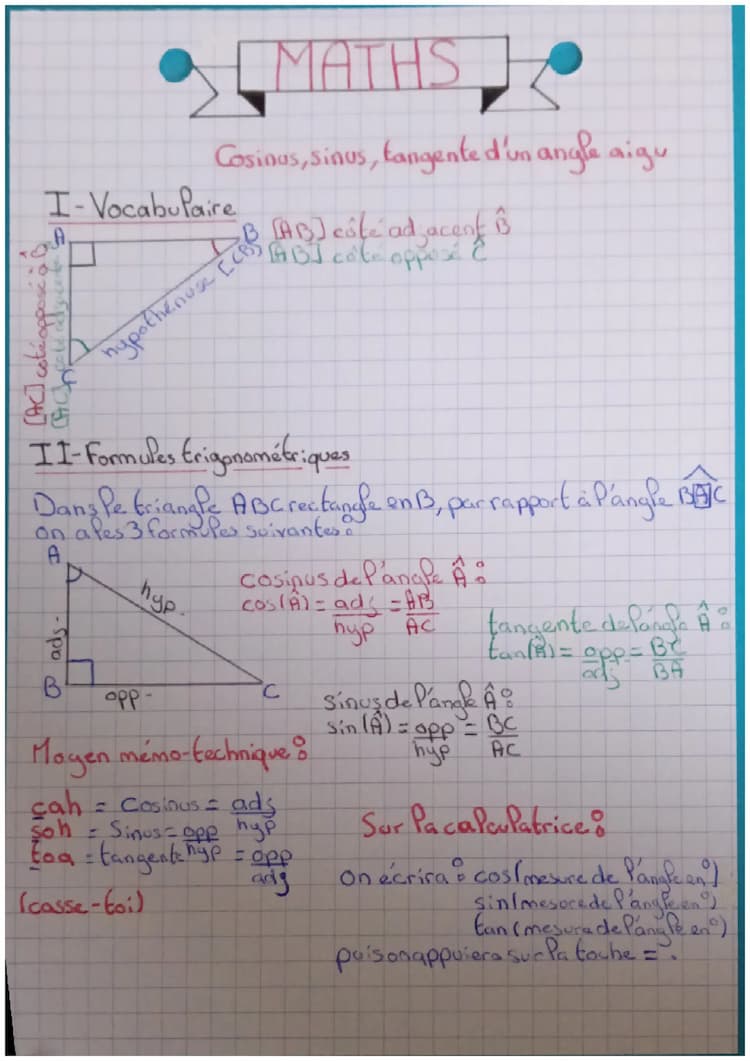 MATHS
Cosinus, sinus, tangente d'un angle aigu
I - Vocabulaire
A
B
[AB] côté adjacent B̂
[AB] côté opposé Ĉ
[AC] coté opposé à B̂
[AC] coté adjacent à
hypothénuse [CB]
C
II-Formules trigonométriques
Dans le triangle ABC rectangle en B, par rapport à l'angle BAC
on a les 3 formules suivantes:
A
hyp.
adj.
B
opp-
C
cosinus de l'angle Â:
cos(Â) = adj/hyp = AB/AC
tangente de l'angle Â:
tan(Â) = opp/adj = BC/BA
sinus de l'angle Â:
sin(Â) = opp/hyp = BC/AC
Moyen mémo-technique:
cah = Cosinus = adj/hyp
soh = Sinus = opp/hyp
toa = tangente = opp/adj
(casse-toi)
Sur la calculatrice:
on écrira: cos(mesure de l'angle en °)
sin(mesure de l'angle en °)
tan(mesure de l'angle en °)
puis on appuiera sur la touche = .